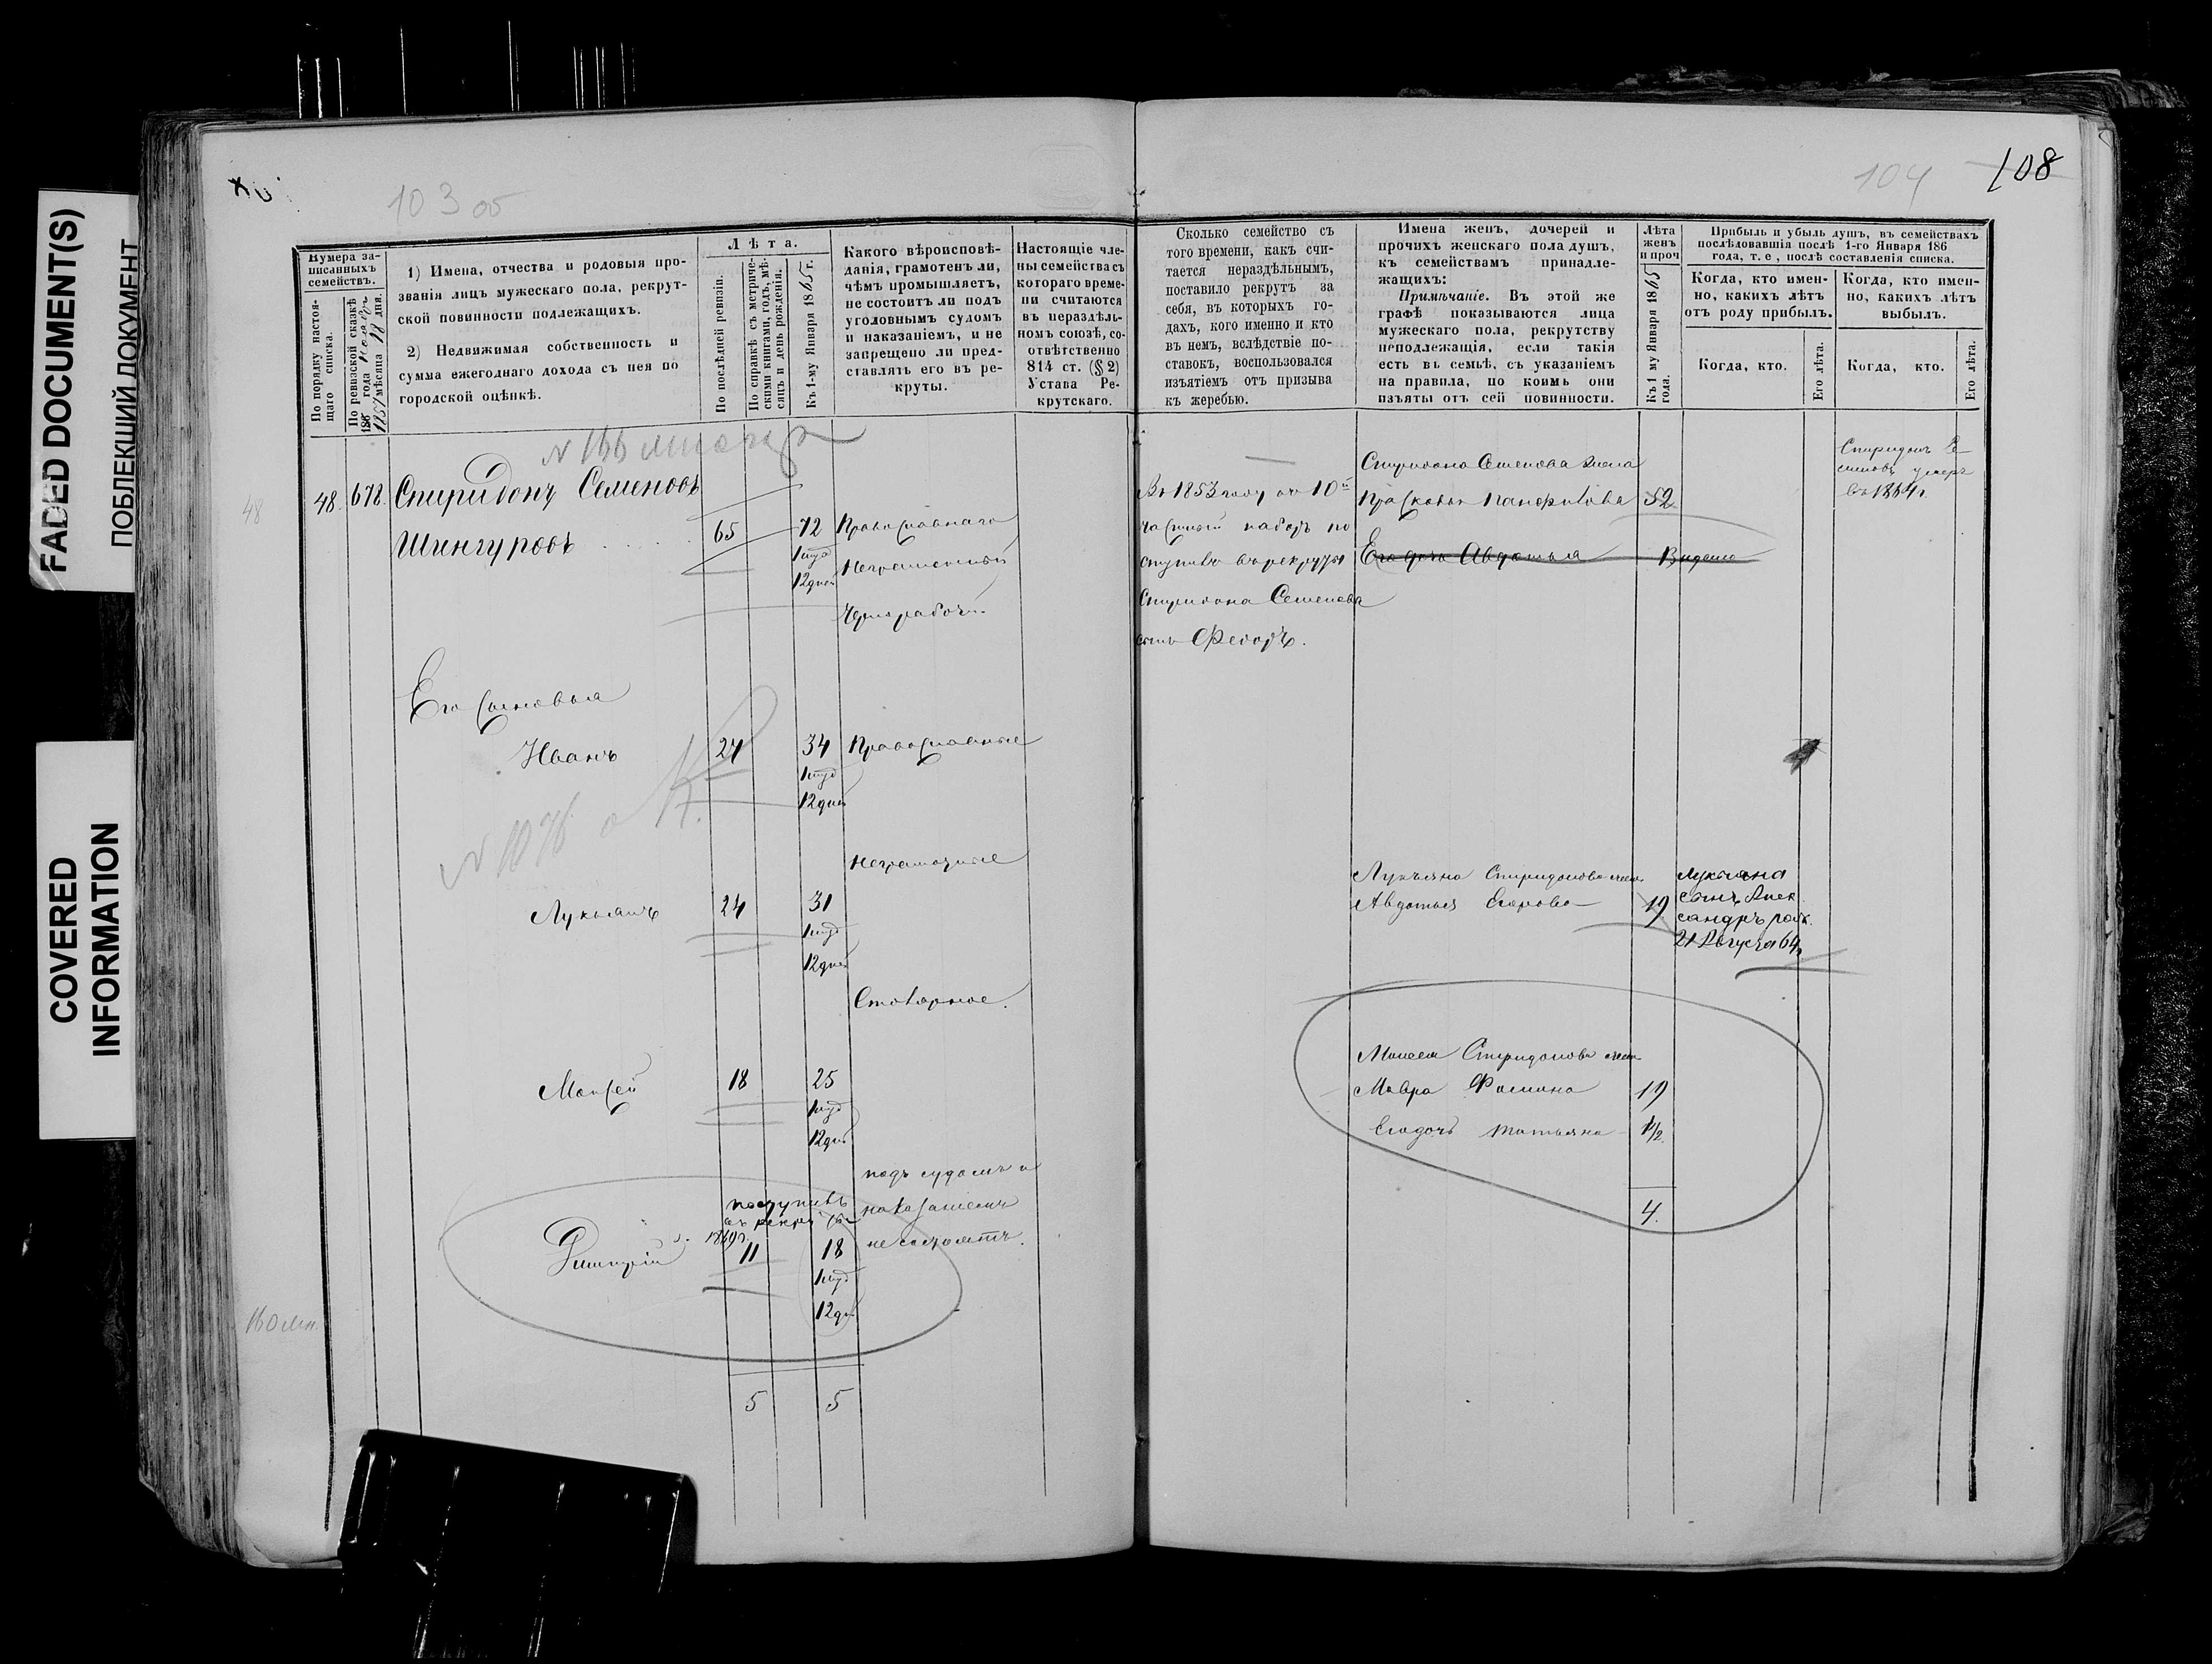 FADED DOCUMENT(S)
ПОБЛЕКШИЙ ДОКУМЕНТ
COVERED
INFORMATION
103 об
104
108
Нумера за-
писанныхъ
семействъ.
По порядку настоя-
щаго списка.
По ревизской сказкѣ
186 года
1857 мѣсяца 18 дня.
1) Имена, отчества и родовыя про-
званія лицъ мужескаго пола, рекрут-
ской повинности подлежащихъ.
2) Недвижимая собственность и
сумма ежегоднаго дохода съ нея по
городской оцѣнкѣ.
Лѣта.
По послѣдней ревизіи.
По справкѣ съ метриче-
скими книгами, годъ, мѣ-
сяцъ и день рожденія.
Къ 1-му Января 1865 г.
Какого вѣроисповѣ-
данія, грамотенъ ли,
чѣмъ промышляетъ,
не состоитъ ли подъ
уголовнымъ судомъ
и наказаніемъ, и не
запрещено ли пред-
ставлять его въ ре-
круты.
Настоящіе чле-
ны семейства съ
котораго време-
ни считаются
въ нераздѣль-
номъ союзѣ, со-
отвѣтственно
814 ст. (§ 2)
Устава Ре-
крутскаго.
Сколько семейство съ
того времени, какъ счи-
тается нераздѣльнымъ,
поставило рекрутъ за
себя, въ которыхъ го-
дахъ, кого именно и кто
въ немъ, вслѣдствіе по-
ставокъ, воспользовался
изъятіемъ отъ призыва
къ жеребью.
Имена женъ, дочерей и
прочихъ женскаго пола душъ,
къ семействамъ принадле-
жащихъ:
Примѣчаніе. Въ этой же
графѣ показываются лица
мужескаго пола, рекрутству
неподлежащія, если такія
есть въ семьѣ, съ указаніемъ
на правила, по коимъ они
изъяты отъ сей повинности.
Лѣта
женъ
и проч
Къ 1 му Января 1865
года.
Прибыль и убыль душъ, въ семействахъ
послѣдовавшія послѣ 1-го Января 186
года, т. е, послѣ составленія списка.
Когда, кто имен-
но, какихъ лѣтъ
отъ роду прибылъ.
Когда, кто имен-
но, какихъ лѣтъ
выбылъ.
Когда, кто.
Его лѣта.
Когда, кто.
Его лѣта.
N 166
48
48. 678. Спиридонъ Семеновъ
Шингуровъ
65
72
12 дней
Православнаго
Неграмотный
Чернорабочій
Его Сыновья
Иванъ 24 34 Православные
12 дней
N 1076
Неграмотные
Лукьянъ 24 31
12 дней
Столярное.
Моисей 18 25
12 дней
подъ судомъ и
наказаніемъ
не состоятъ.
поступилъ
въ рекруты
Дмитрій 11 18
12 дн
160
5 5
Въ 1853 году въ 10й
частный наборъ по
ступилъ въ рекруты
Спиридона Семенова
сынъ Федоръ.
Спиридона Семенова жена
Прасковья Панфилова 52
Его дочь Авдотья Выдана
Спиридонъ Се-
меновъ умеръ
въ 1864 г.
Лукьяна Спиридонова жена
Авдотья Егорова 19
Лукьяна
сынъ Алек
сандръ род.
21 Августа 64 г.
Моисея Спиридонова жена
Мавра Фомина 19
Его дочь Татьяна 1/2
4.